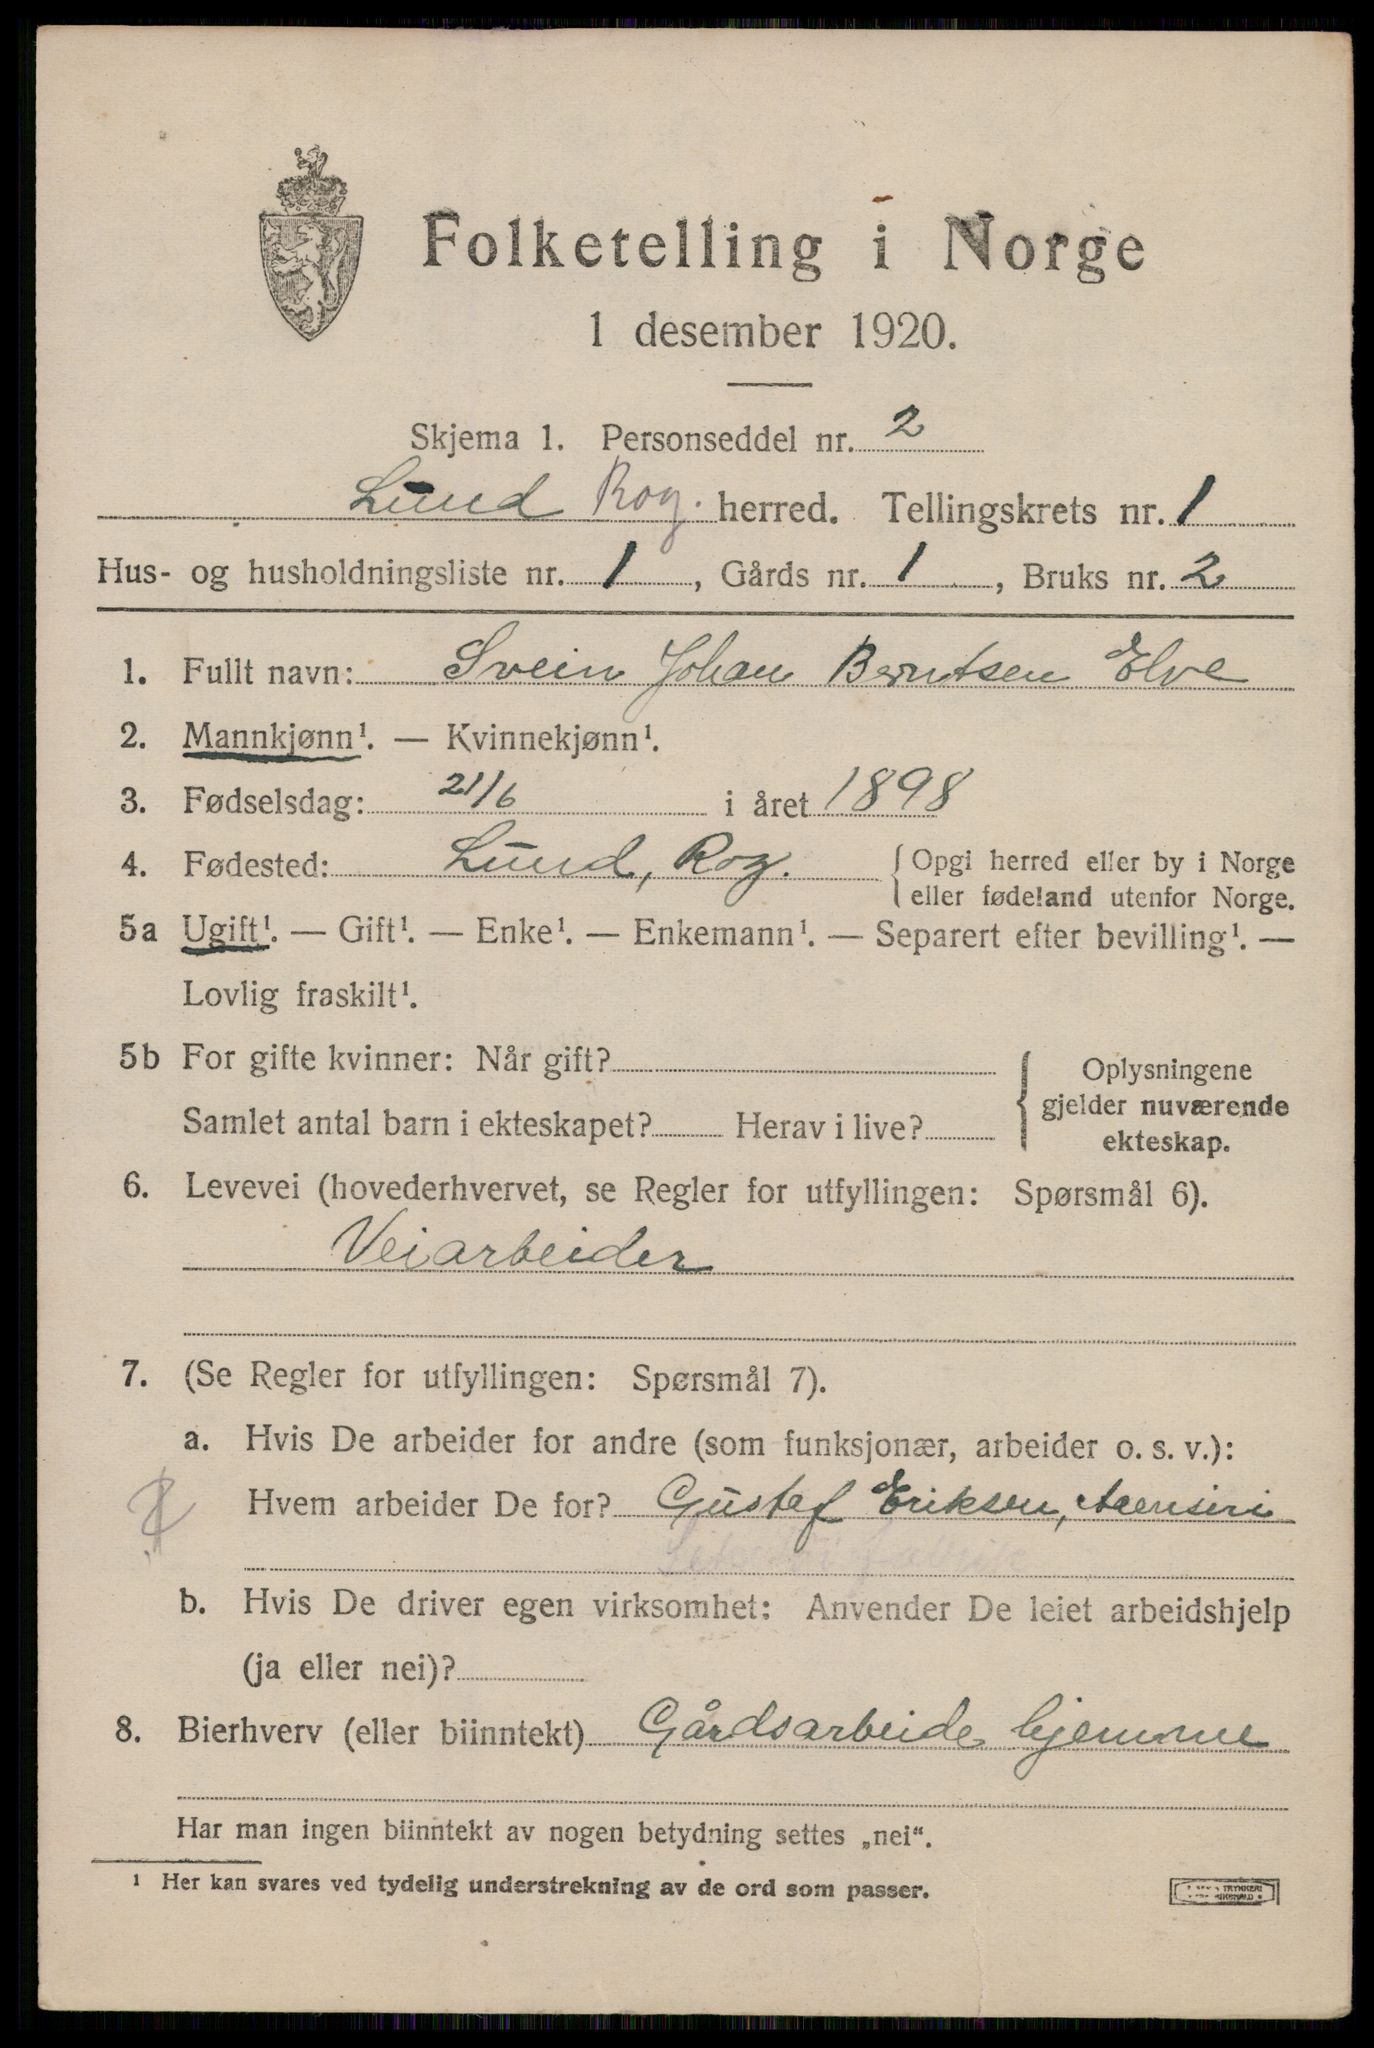 Folketelling i Norge
1 desember 1920.
Skjema 1. Personseddel nr. 2
Lund Rog. herred. Tellingskrets nr. 1
Hus- og husholdningsliste nr. 1, Gårds nr. 1, Bruks nr. 2
1. Fullt navn: Svein Johan Berntsen Elve
2. Mannkjønn¹. — Kvinnekjønn¹.
3. Fødselsdag: 21/6 i året 1898
4. Fødested: Lund, Rog. { Opgi herred eller by i Norge
eller fødeland utenfor Norge.
5a Ugift¹. — Gift¹. — Enke¹. — Enkemann¹. — Separert efter bevilling¹. —
Lovlig fraskilt¹.
5b For gifte kvinner: Når gift?
Samlet antal barn i ekteskapet? Herav i live?
Oplysningene
gjelder nuværende
ekteskap.
6. Levevei (hovederhvervet, se Regler for utfyllingen: Spørsmål 6).
Veiarbeider
7. (Se Regler for utfyllingen: Spørsmål 7).
a. Hvis De arbeider for andre (som funksjonær, arbeider o. s. v.):
Hvem arbeider De for? Gustef Eriksen,
b. Hvis De driver egen virksomhet: Anvender De leiet arbeidshjelp
(ja eller nei)?
8. Bierhverv (eller biinntekt) Gårdsarbeide hjemme
Har man ingen biinntekt av nogen betydning settes „nei“.
¹ Her kan svares ved tydelig understrekning av de ord som passer.